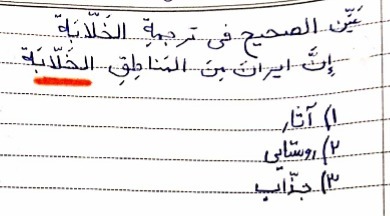 عَیِّن الصحیح فی ترجمةِ الخَلّابَة
إنَّ ایران مِنَ المَناطِقِ الخَلّابَة
۱) آثار
۲) روستایی
۳) جذّاب